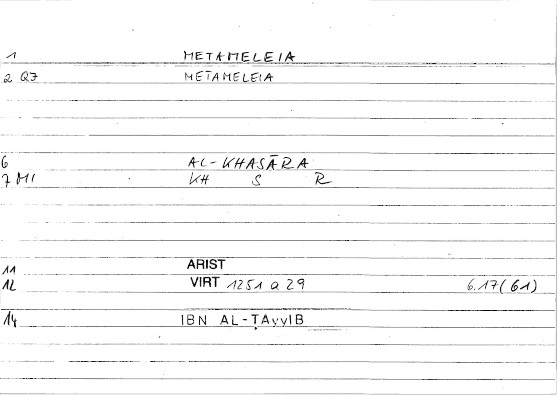 1 METAMELEIA
2 Q7 METAMELEIA
6 AL-KHASĀRA
7 M1 KH S R
11 ARIST
12 VIRT 1251 a 29 6.17(61)
14 IBN AL-ṬAyyIB